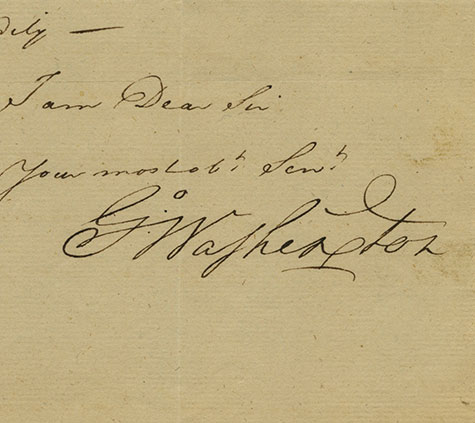 I am Dear Sir
Your most obt Servt
Go Washington